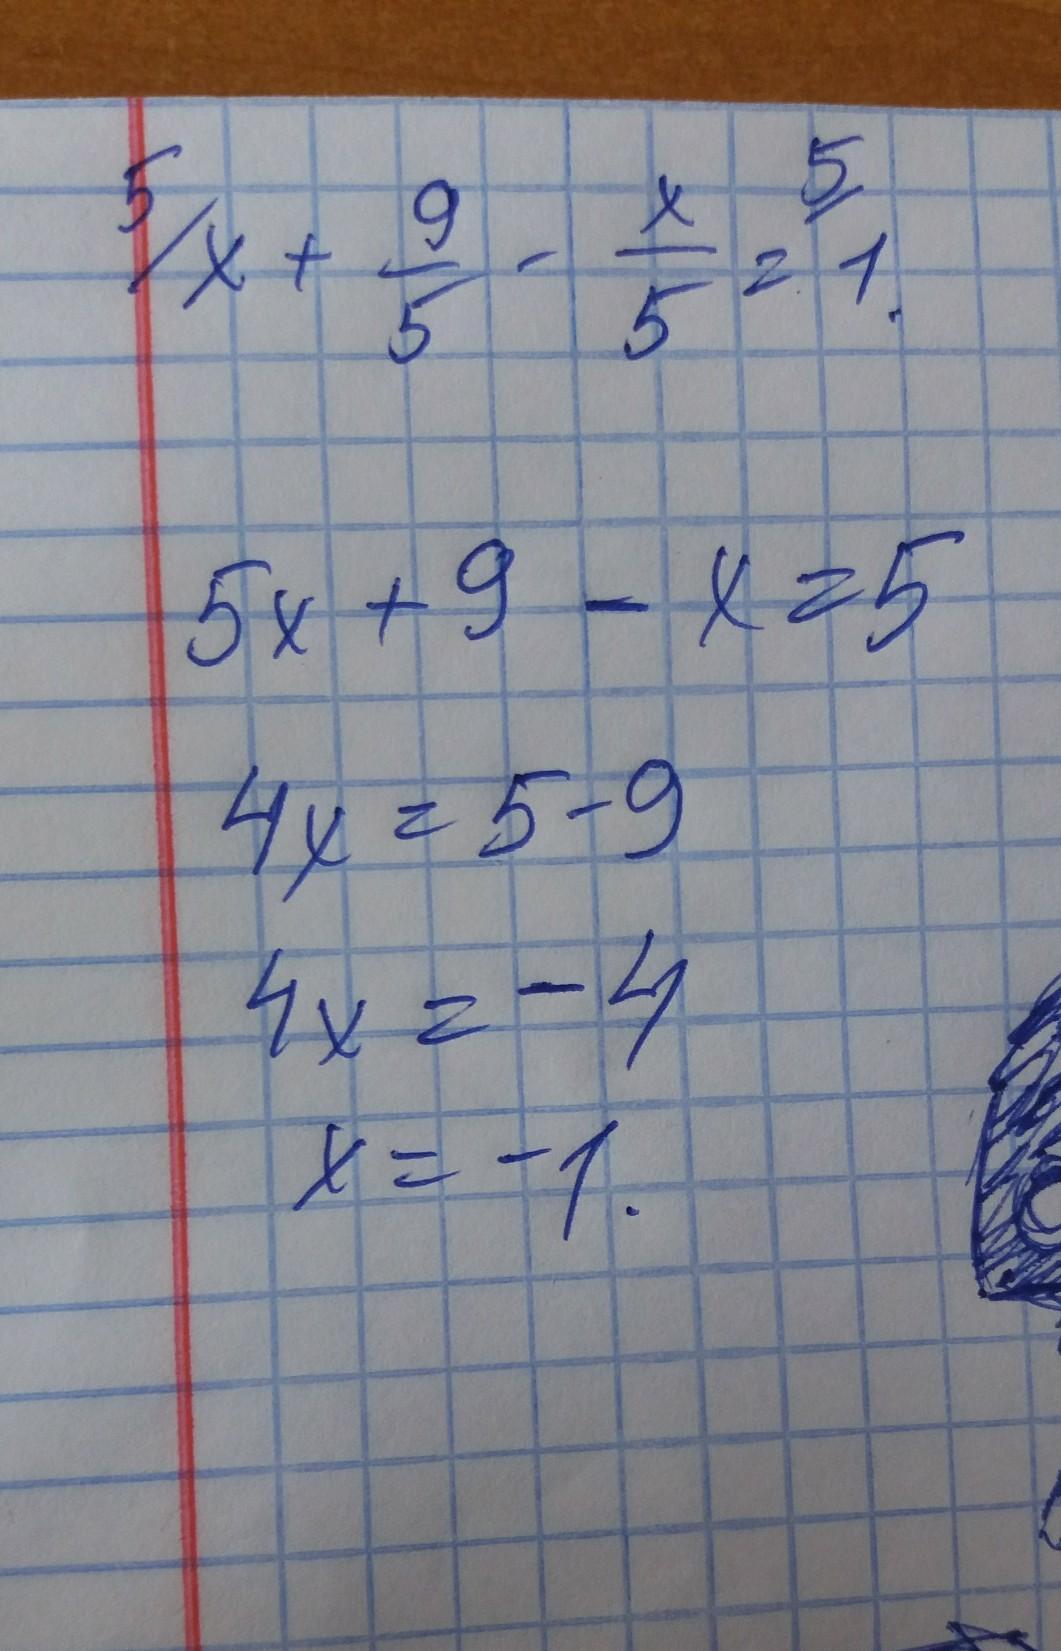 5/x + 9/5 - x/5 = 5/1.
5x + 9 - x = 5
4x = 5 - 9
4x = - 4
x = - 1.